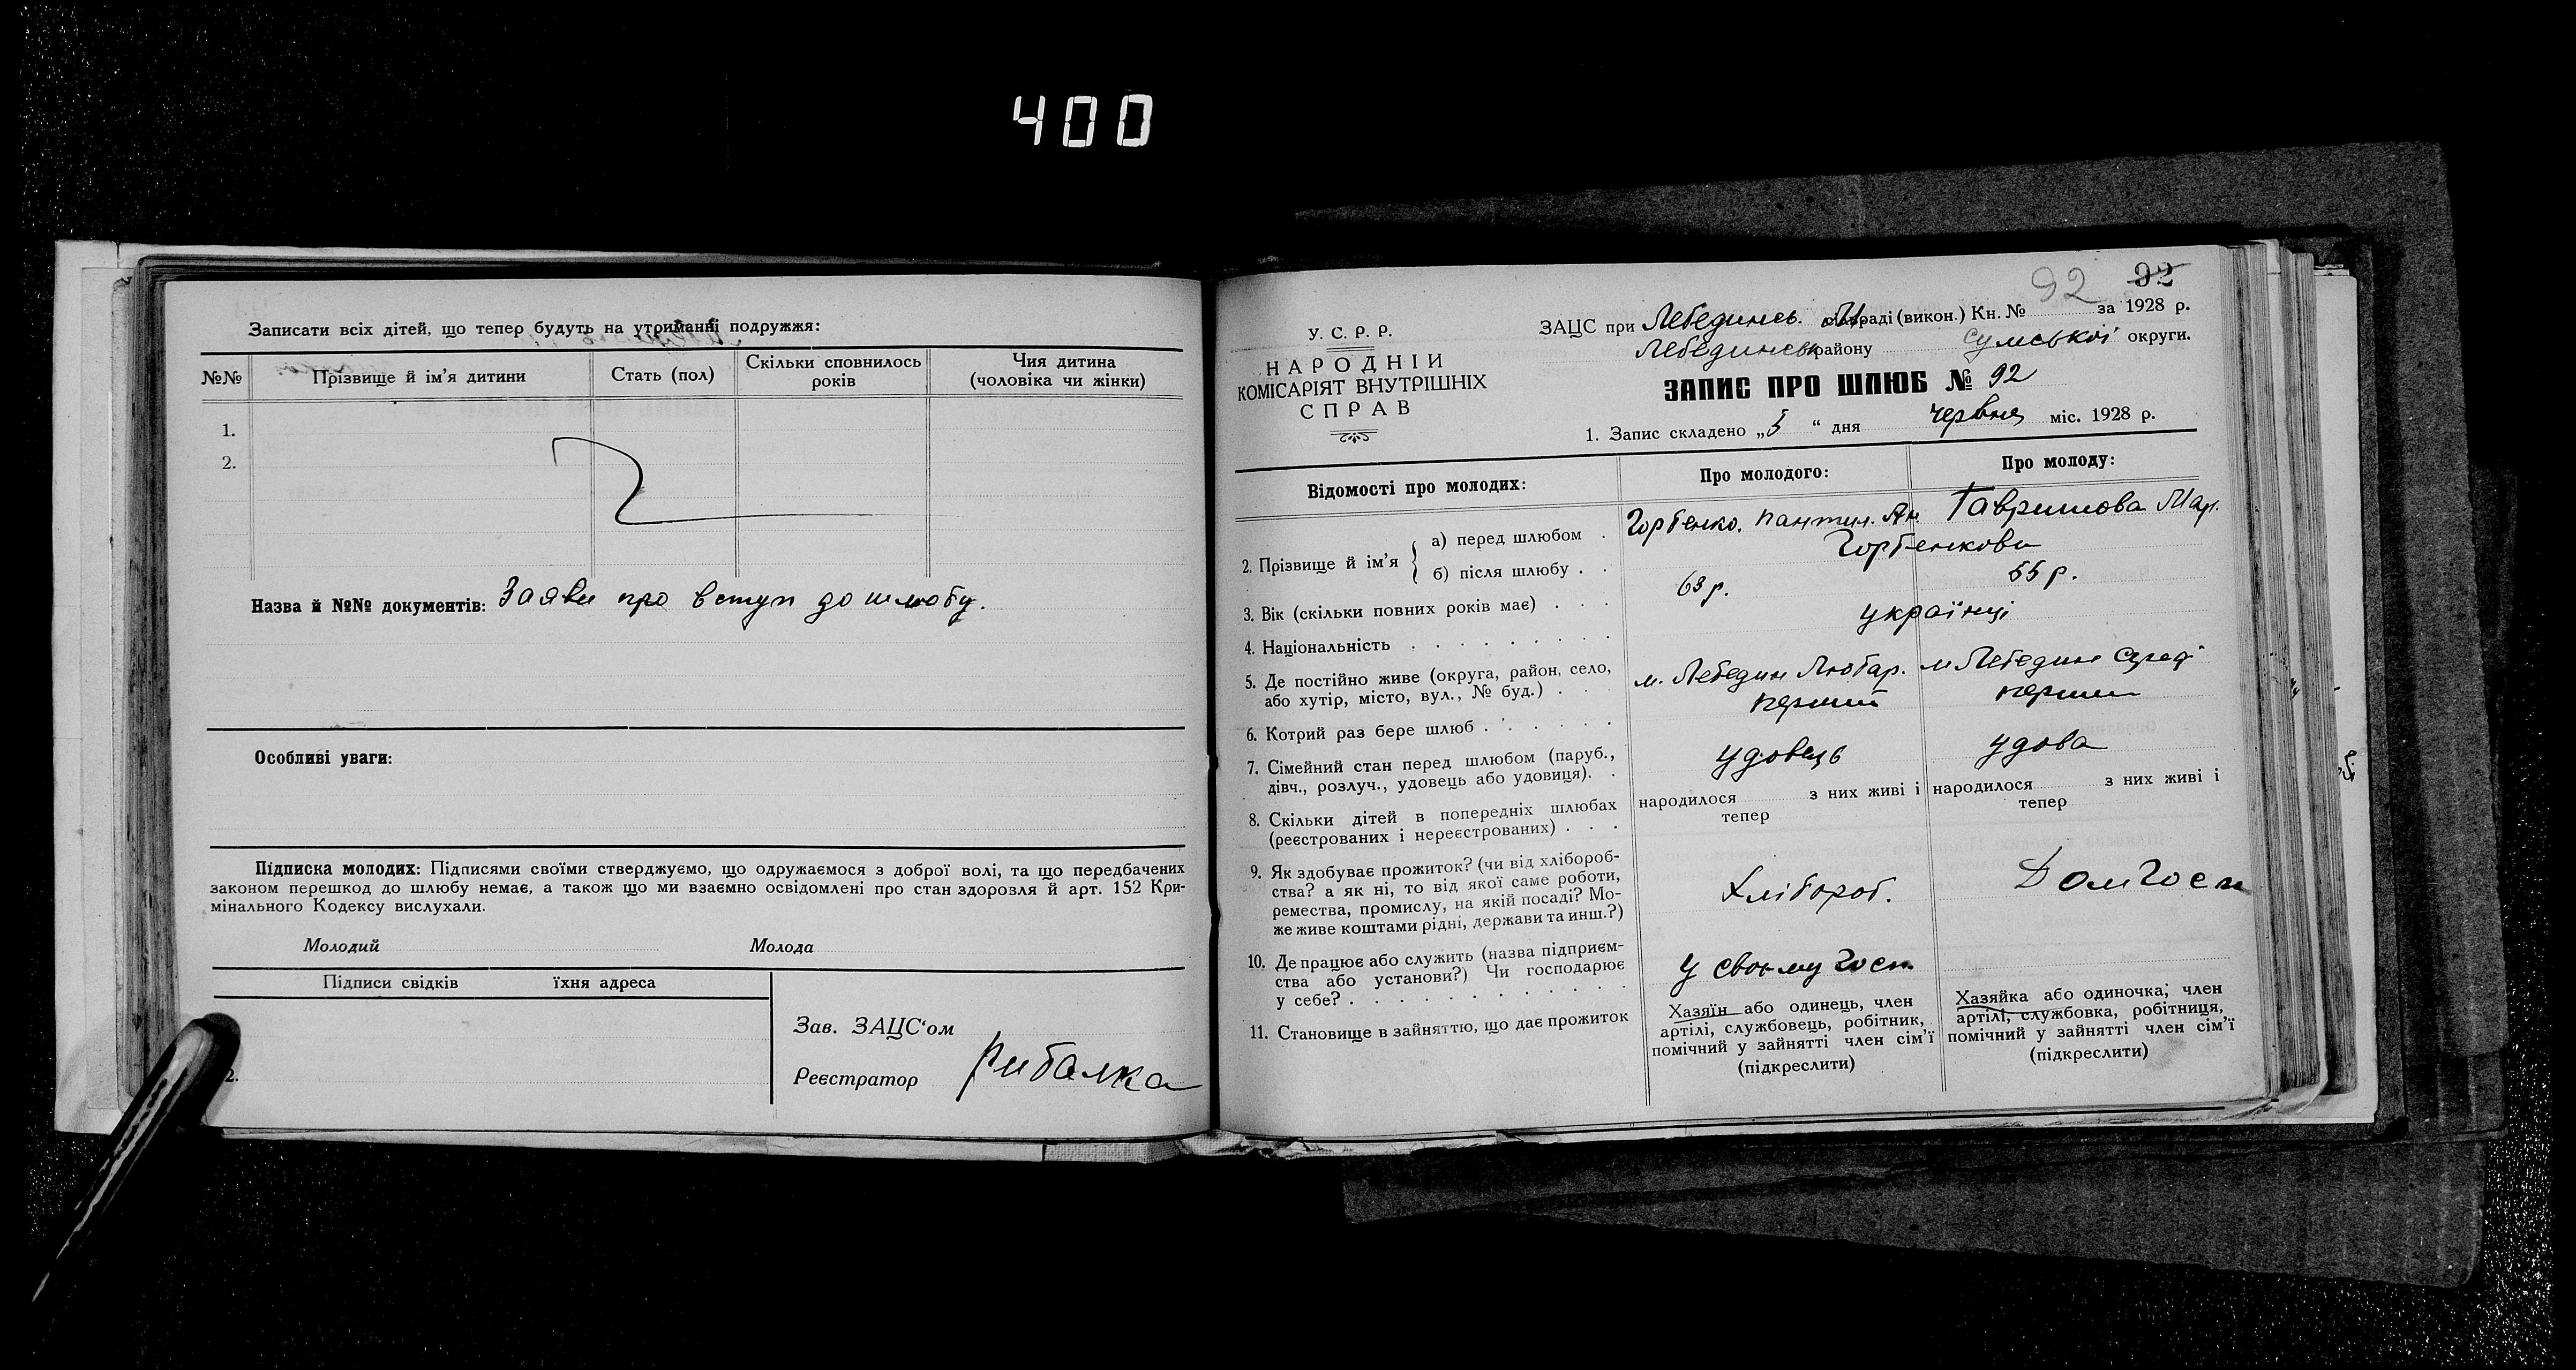 400
Записати всіх дітей, що тепер будуть на утриманні подружжя:
№№ Прізвище й ім'я дитини Стать (пол) Скільки сповнилось років Чия дитина (чоловіка чи жінки)
1.
2.
Назва й №№ документів: Заяви про вступ до шлюбу.
Особливі уваги:
Підписка молодих: Підписями своїми стверджуємо, що одружаємося з доброї волі, та що передбачених
законом перешкод до шлюбу немає, а також що ми взаємно освідомлені про стан здоровля й арт. 152 Кри-
мінального Кодексу вислухали.
Молодий Молода
Підписи свідків їхня адреса
2.
Зав. ЗАЦС'ом
Реєстратор Рибалка
92 92
У. С. Р. Р.
НАРОДНІЙ
КОМІСАРІЯТ ВНУТРІШНІХ
СПРАВ
ЗАЦС при Лебединсь. раді (викон.) Кн. № за 1928 р.
Лебединськ району Сумської округи.
ЗАПИС ПРО ШЛЮБ № 92
1. Запис складено „5 “ дня червня міс. 1928 р.
Відомості про молодих: Про молодого: Про молоду:
2. Прізвище й ім'я
а) перед шлюбом . Горбенко. Пантил. Ян Гавришова Мар.
б) після шлюбу . . Горбенкови
3. Вік (скільки повних років має) . . . 63 р. 55 р.
4. Національність . . . . . . . . українці
5. Де постійно живе (округа, район, село,
або хутір, місто, вул., № буд.) . . . м. Лебедин Любар. м Лебедин
6. Котрий раз бере шлюб . . . . . . перший перший
7. Сімейний стан перед шлюбом (паруб.,
дівч., розлуч., удовець або удовиця). . удовець удова
8. Скільки дітей в попередніх шлюбах
(реєстрованих і нереєстрованих) . . .
народилося з них живі і
тепер
народилося з них живі і
тепер
9. Як здобуває прожиток? (чи від хлібороб-
ства? а як ні, то від якої саме роботи,
ремества, промислу, на якій посаді? Мо-
же живе коштами рідні, держави та инш.?)
Хлібороб. Домгосп
10. Де працює або служить (назва підприєм-
ства або установи?) Чи господарює
у себе? . . . . . . . . . . . .
У своєму госп.
11. Становище в зайняттю, що дає прожиток
Хазяїн або одинець, член
артілі, службовець, робітник,
помічний у зайнятті член сім'ї
(підкреслити)
Хазяйка або одиночка; член
артілі, службовка, робітниця,
помічний у зайнятті член сім'ї
(підкреслити)